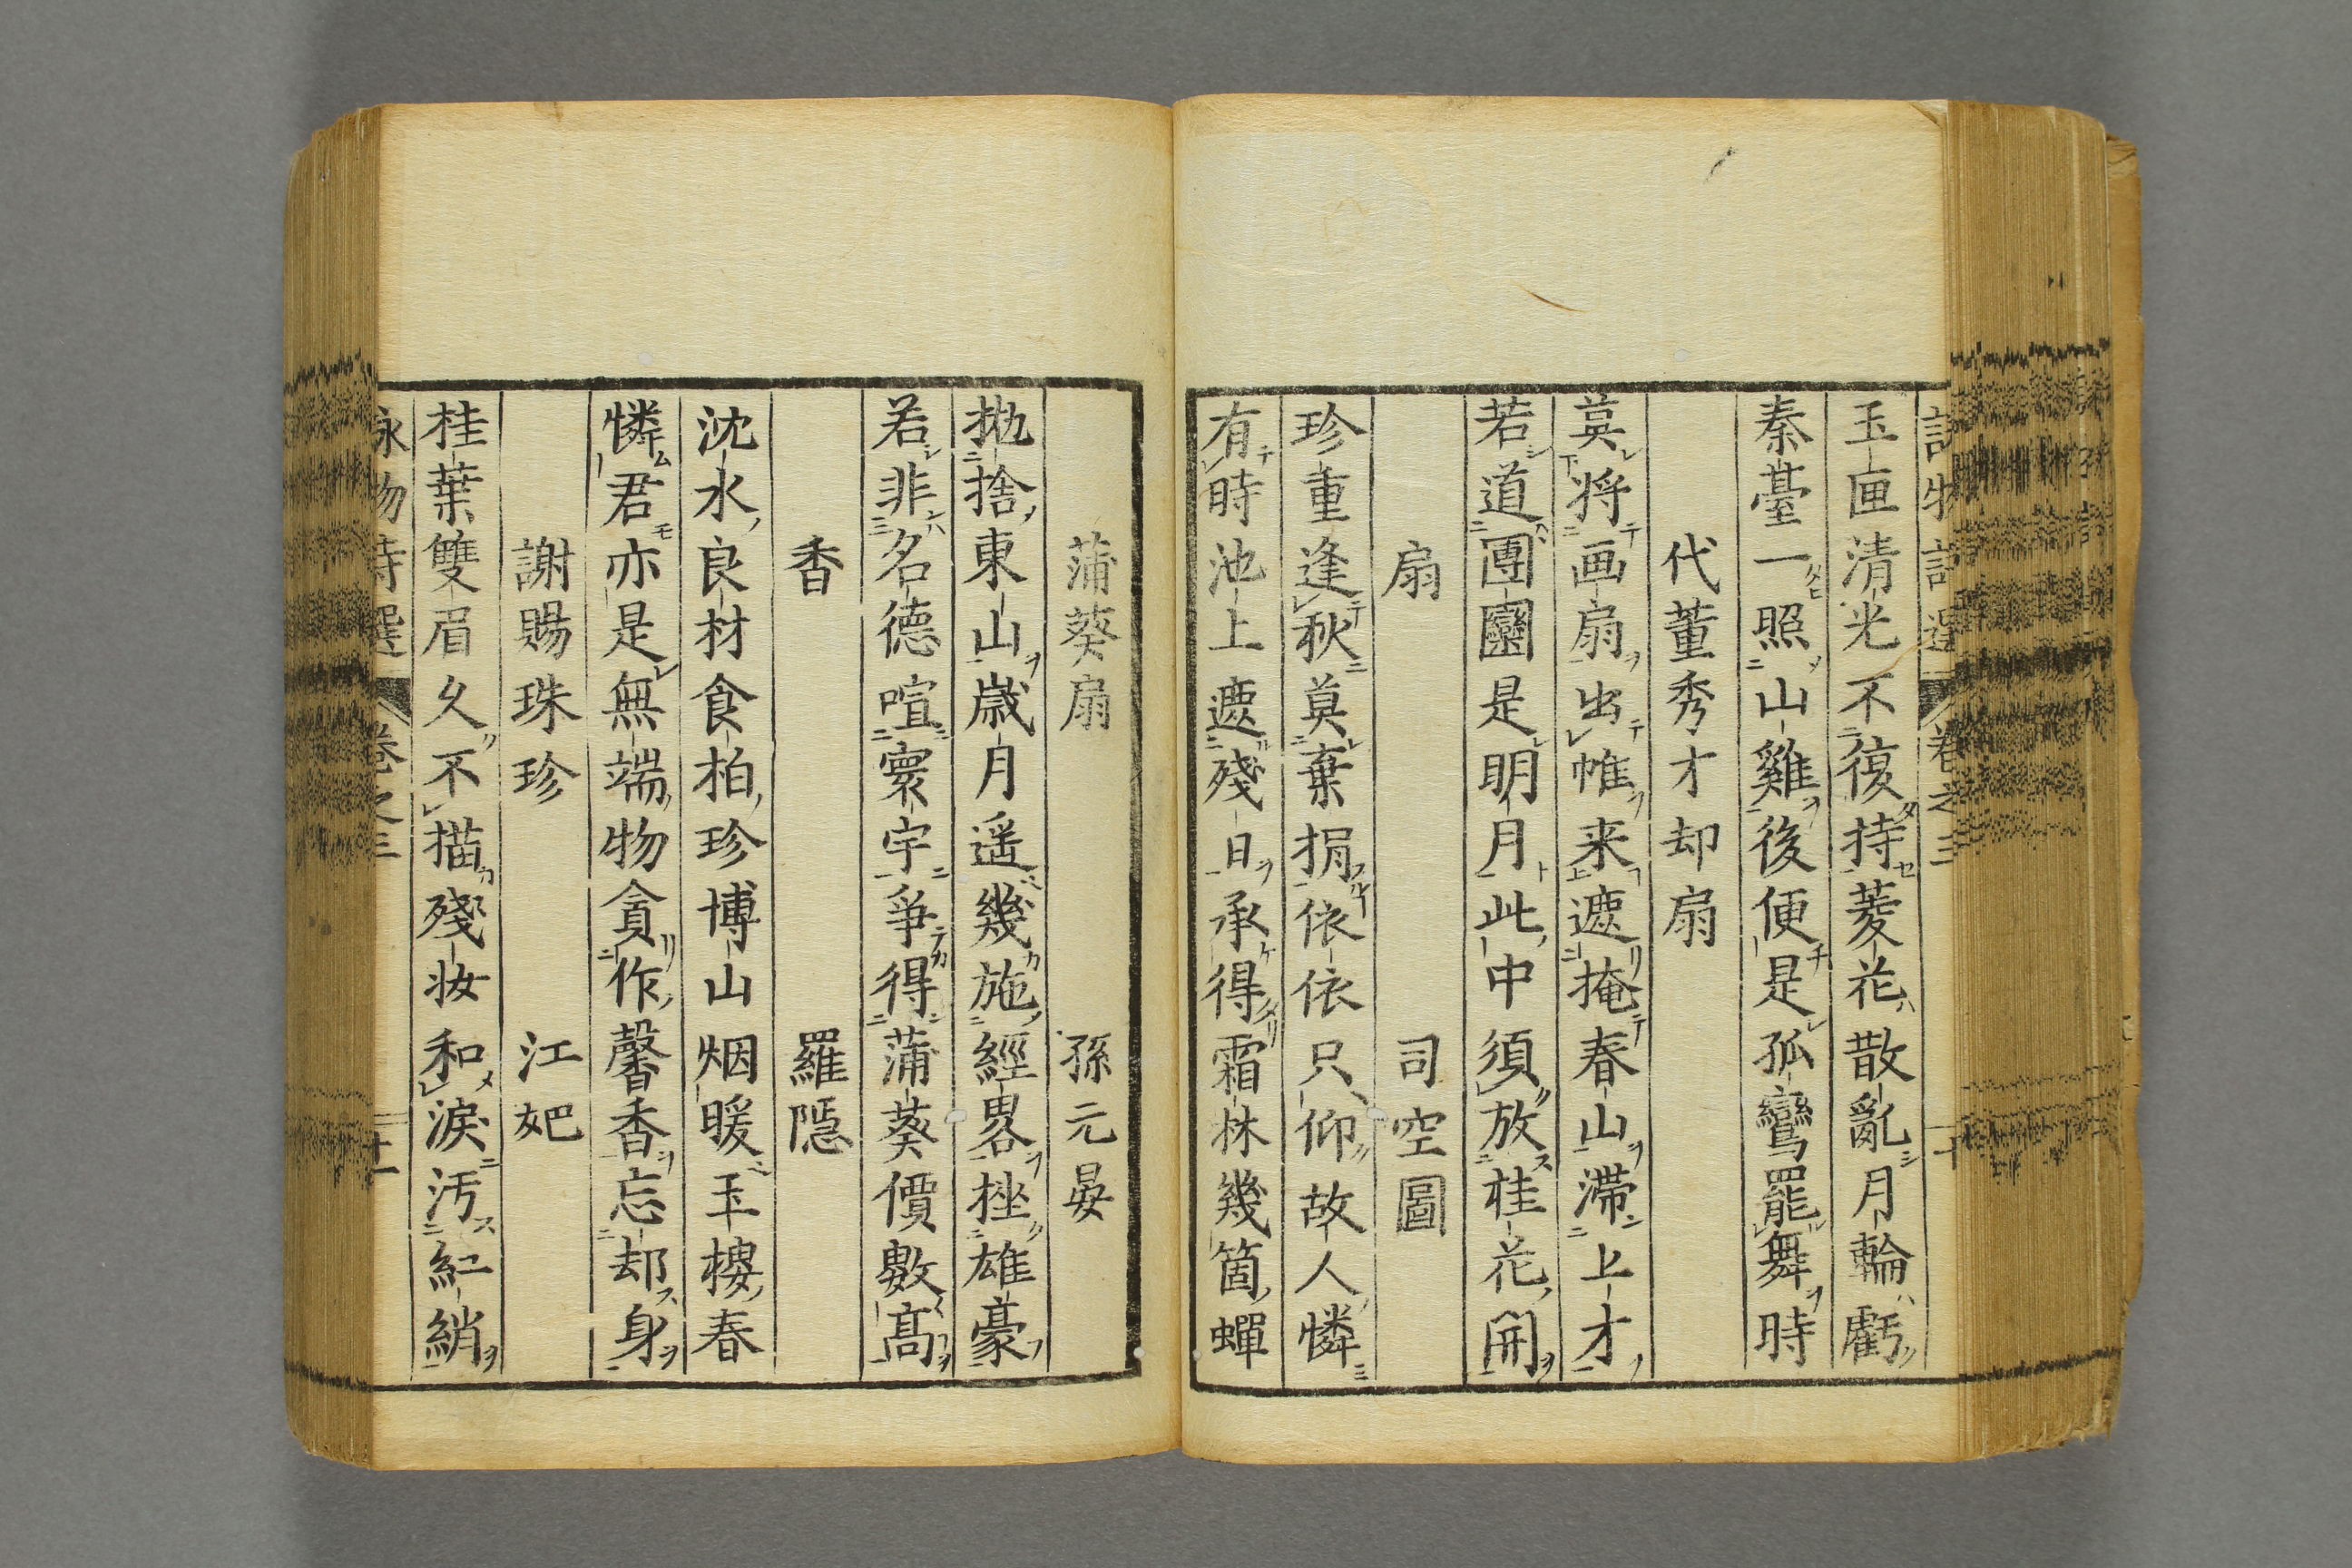 詠物詩選 卷之三 十
玉匣清光不復持菱花散亂月輪虧
秦臺一照山雞後便是孤鸞罷舞時
代董秀才却扇
莫將画扇出帷来遮掩春山滯上才
若道團圞是明月此中須放桂花開
扇 司空圖
珍重逢秋莫棄捐依依只仰故人憐
有時池上遮殘日承得霜林幾箇蟬
蒲葵扇 孫元晏
拋捨東山歲月遥幾施經畧挫雄豪
若非名德喧寰宇爭得蒲葵價數高
香 羅隱
沈水良材食柏珍博山烟暖玉樓春
憐君亦是無端物貪作馨香忘却身
謝賜珠珍 江妃
桂葉雙眉久不描殘妝和淚汚紅綃
詠物詩選 卷之三 十一